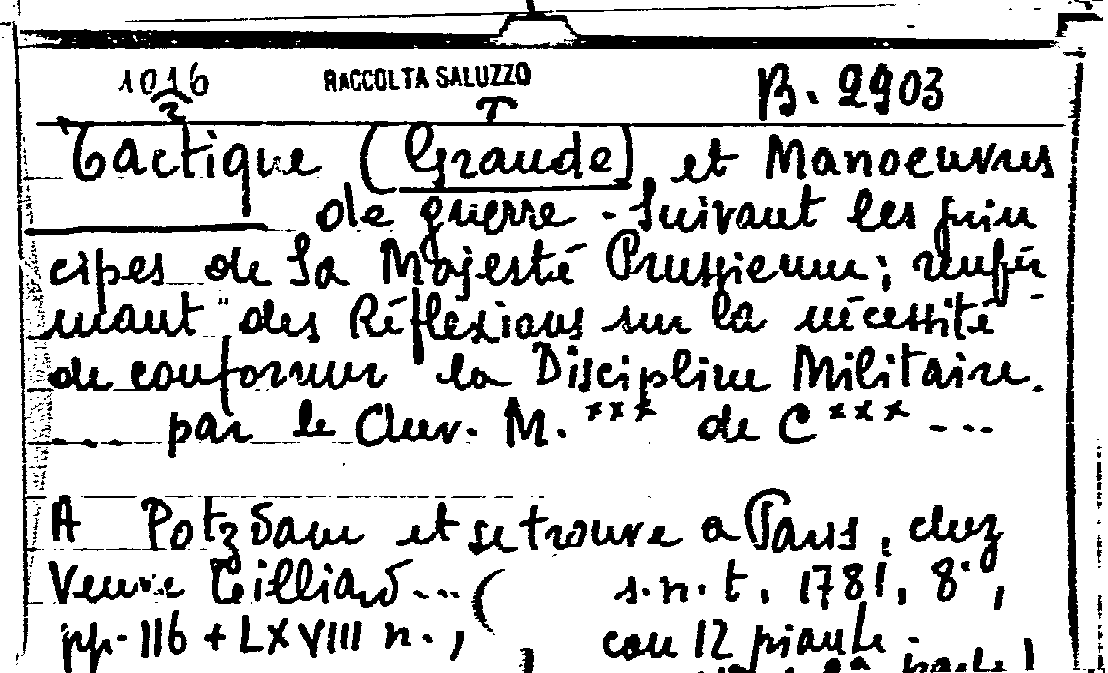 1016 RACCOLTA SALUZZO B. 2903
2 T
Tactique (Grande) et Manoeuvres
de guerre. Suivant les prin
cipes de Sa Majesté Prussienne; renfer
mant des Réflexions sur la nécessité
de conformer la Discipline Militaire.
.... par le Chev. M. *** de C*** ...
A Potzdam et se trouve a Paris, chez
Veuve Tilliard... ( s.n.t. 1781, 8°,
pp. 116 + LXVIII n., con 12 piante.